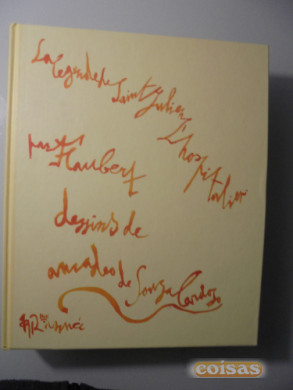 La Légende de
Saint Julien
L'hospitalier
par Flaubert
dessins de
amadeo de Souza Cardoso
coisas